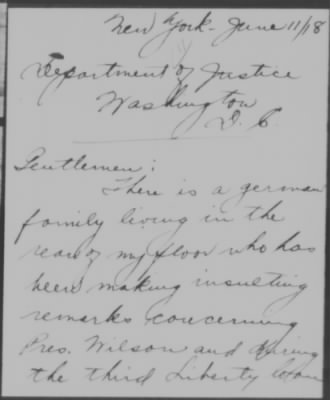 New York - June 11/18
Department of Justice
Washington
D. C.
Gentlemen:
There is a german
family living in the
rear of my floor who has
been making insulting
remarks concerning
Pres. Wilson and during
the third Liberty Loan